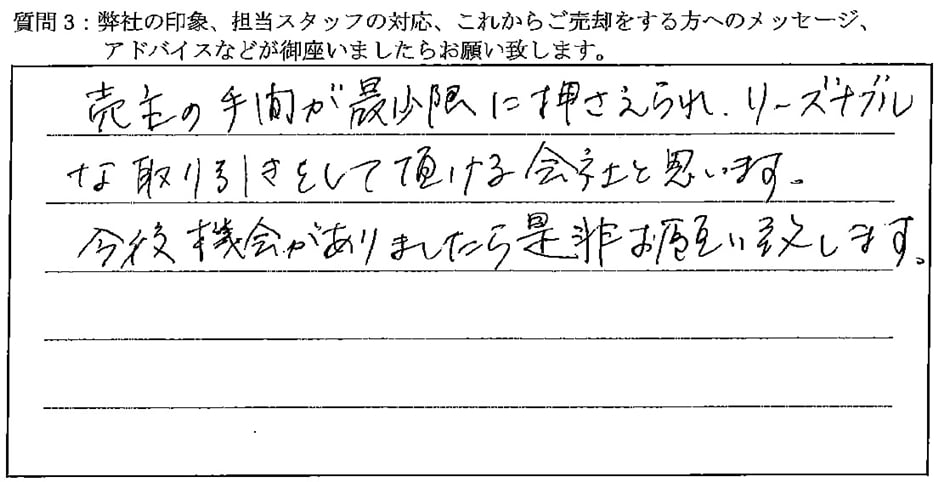 質問3：弊社の印象、担当スタッフの対応、これからご売却をする方へのメッセージ、
アドバイスなどが御座いましたらお願い致します。
売主の手間が最少限に押さえられ、リーズナブル
な取り引きをして頂ける会社と思います。
今後機会がありましたら是非お願い致します。